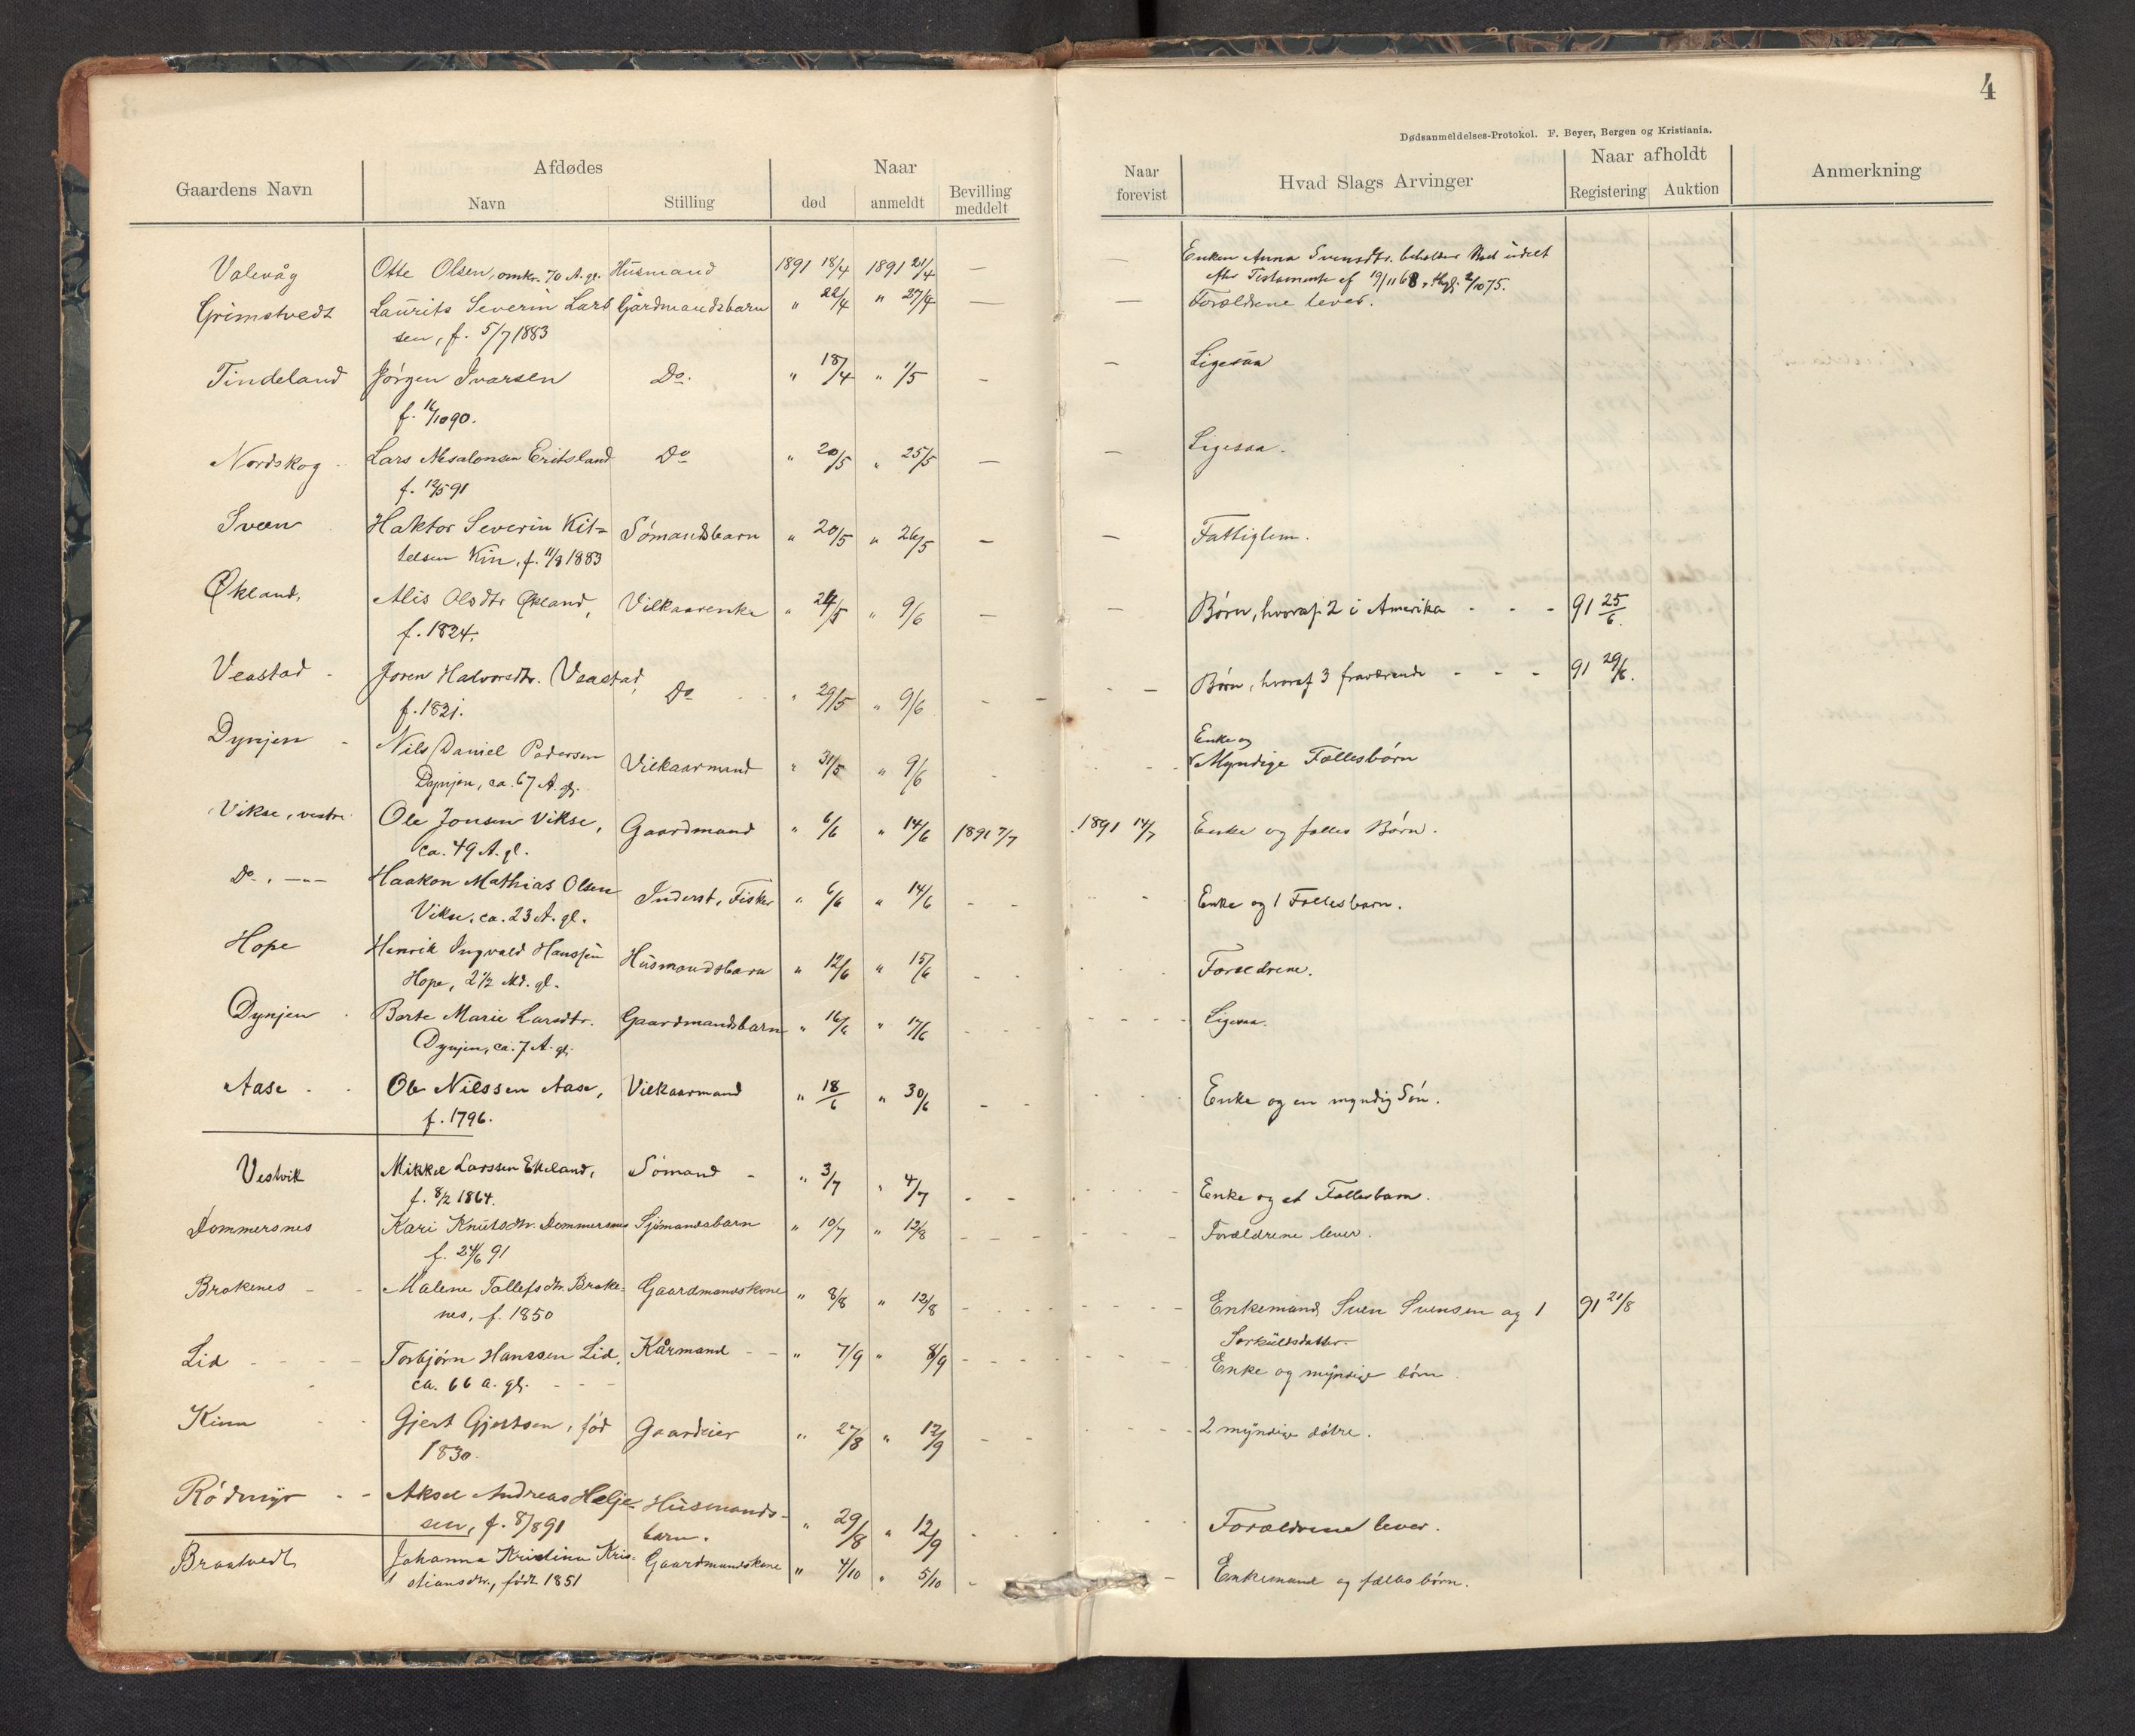 4
Dødsanmeldelses-Protokol. F. Beyer, Bergen og Kristiania.
Gaardens Navn Afdødes Naar Bevilling meddelt Naar forevist Hvad Slags Arvinger Naar afholdt Anmerkning
Navn Stilling død anmeldt Registering Auktion
Valevåg Otte Olsen, omkr. 70 A. gl. Husmand 1891 18/4 1891 21/4 — — Enken Anna Svensdtr. beholder Boet udelt
efter Testamente af 19/11 68, thgl. 2/10 75.
Grimstvedt Laurits Severin Lars Gårdmandsbarn " 22/4 " 27/4 — — Forældrene lever.
sen, f. 5/7 1883
Tindeland Jørgen Ivarsen Do. " 18/4 " 1/5 - — Ligesaa
f. 16/10 90.
Nordskog - Lars Absalonsen Eritsland Do " 20/5 " 25/5 — — Ligesaa.
f. 12/5 91
Sveen Haktor Severin Kit= Sömandsbarn " 20/5 " 26/5 — — Fattiglem.
telsen Kin, f. 11/8 1883
Økland, Alis Olsdtr Økland, Vilkaarenke " 24/5 " 9/6 — — Börn, hvoraf 2 i Amerika - - - 91 25/6.
f. 1824.
Veastad - Joren Halvorsdtr. Veastad, Do " 29/5 " 9/6 - — - — Börn, hvoraf 3 fraværende - - - 91 29/6.
f. 1821.
Dynjen - Nils Daniel Pedersen Vilkaarmand " 31/5 " 9/6 - Enke og
Dynjen, ca. 67 A. gl. Myndige Fællesbörn
Vikse, vestre Ole Jonsen Vikse, Gaardmand " 6/6 " 14/6 1891 7/7 1891 14/7 Enke og fælles Börn.
ca. 49 A. gl.
Do. — Haakon Mathias Olsen Inderst, Fisker " 6/6 " 14/6 - - - - Enke og 1 Fællesbarn.
Vikse, ca. 23 A. gl.
Hope Henrik Ingvald Hanssen Husmandsbarn " 12/6 " 15/6 - - Forældrene.
Hope, 2 1/2 Md. gl.
Dynjen - Berte Marie Larsdtr. Gaardmandsbarn " 16/6 " 17/6 - - - Ligesaa.
Dynjen, ca. 7 A. gl.
Aase - - Ole Nilssen Aase, Vilkaarmand " 18/6 " 30/6 - - Enke og en myndig Sön.
f. 1796.
Vestvik Mikkel Larssen Ekeland, Sömand - " 3/7 " 4/7 - - Enke og et Fællesbarn.
f. 8/2 1864.
Dommersnes Kari Knutsdtr. Dommersnes Sjömandsbarn " 10/7 " 12/8 - - - Forældrene lever.
f. 24/6 91
Brakenes - - Malene Tollefsdtr. Brake- Gaardmandskone " 8/8 " 12/8 - - - Enkemand Sven Svensen og 1 91 21/8
nes, f. 1850
Lid - - - - Torbjørn Hanssen Lid, Kårmand - - " 7/9 " 8/9 - - - Enke og myndige börn.
ca. 66 a. gl. - - -
Kinn - - Gjert Gjertsen, föd Gaardeier " 27/8 " 12/9 - - 2 myndige dötre.
1830.
Rödmyr - - Aksel Andreas Helje- Husmands- " 29/8 " 12/9 - - Forældrene lever.
sen, f. 8/8 91 barn.
Braatvedt Johanna Kristina Kris- Gaardmandskone " 4/10 " 5/10 - - Enkemand og fælles börn.
stiansdtr., födt 1851